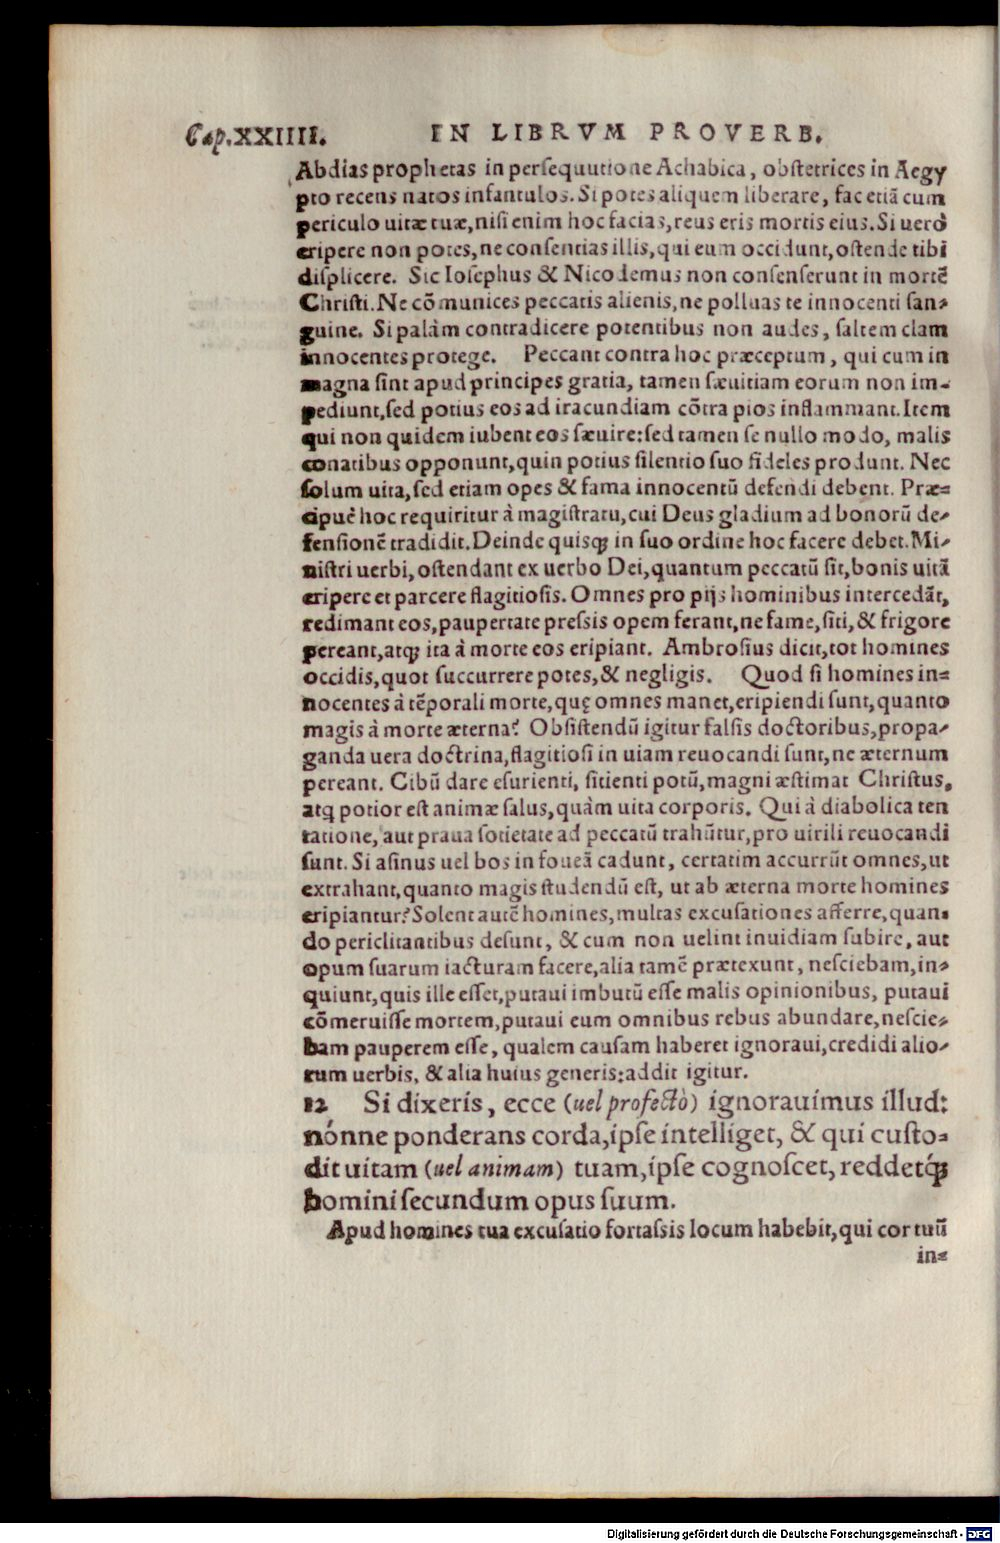 Cap.XXIIII. IN LIBRVM PROVERB.
Abdias prophetas in persequutione Achabica, obstetrices in Aegy
pto recens natos infantulos. Si potes aliquem liberare, fac etiã cum
periculo uitæ tuæ, nisi enim hoc facias, reus eris mortis eius. Si uerò
eripere non potes, ne consentias illis, qui eum occidunt, ostende tibi
displicere. Sic Iosephus & Nicodemus non consenserunt in mortẽ
Christi. Ne cõmunices peccatis alienis, ne polluas te innocenti san-
guine. Si palàm contradicere potentibus non audes, saltem clam
innocentes protege. Peccant contra hoc præceptum, qui cum in
magna sint apud principes gratia, tamen sæuitiam eorum non im-
pediunt, sed potius eos ad iracundiam cõtra pios inflammant. Item
qui non quidem iubent eos sæuire: sed tamen se nullo modo, malis
conatibus opponunt, quin potius silentio suo fideles produnt. Nec
solum uita, sed etiam opes & fama innocentũ defendi debent. Præ=
cipuè hoc requiritur à magistratu, cui Deus gladium ad bonorũ de-
fensionẽ tradidit. Deinde quisqꝫ in suo ordine hoc facere debet. Mi-
nistri uerbi, ostendant ex uerbo Dei, quantum peccatũ sit, bonis uitã
eripere et parcere flagitiosis. Omnes pro pijs hominibus intercedãt,
redimant eos, paupertate pressis opem ferant, ne fame, siti, & frigore
pereant, atqꝫ ita à morte eos eripiant. Ambrosius dicit, tot homines
occidis, quot succurrere potes, & negligis. Quod si homines in=
nocentes à tẽporali morte, quę omnes manet, eripiendi sunt, quanto
magis à morte æterna? Obsistendũ igitur falsis doctoribus, propa-
ganda uera doctrina, flagitiosi in uiam reuocandi sunt, ne æternum
pereant. Cibũ dare esurienti, sitienti potũ, magni æstimat Christus,
atq potior est animæ salus, quàm uita corporis. Qui à diabolica ten
tatione, aut praua societate ad peccatũ trahũtur, pro uirili reuocandi
sunt. Si asinus uel bos in foueã cadunt, certatim accurrũt omnes, ut
extrahant, quanto magis studendũ est, ut ab æterna morte homines
eripiantur? Solent autẽ homines, multas excusationes afferre, quan-
do periclitantibus desunt, & cum non uelint inuidiam subire, aut
opum suarum iacturam facere, alia tamẽ prætexunt, nesciebam, in-
quiunt, quis ille esset, putaui imbutũ esse malis opinionibus, putaui
cõmeruisse mortem, putaui eum omnibus rebus abundare, nescie-
bam pauperem esse, qualem causam haberet ignoraui, credidi alio-
rum uerbis, & alia huius generis: addit igitur.
12 Si dixeris, ecce (uel profectò) ignorauimus illud:
nónne ponderans corda, ipse intelliget, & qui custo-
dit uitam (uel animam) tuam, ipse cognoscet, reddetq́ꝫ
homini secundum opus suum.
Apud homines tua excusatio fortassis locum habebit, qui cor tuũ
in=
Digitalisierung gefördert durch die Deutsche Forschungsgemeinschaft - DFG